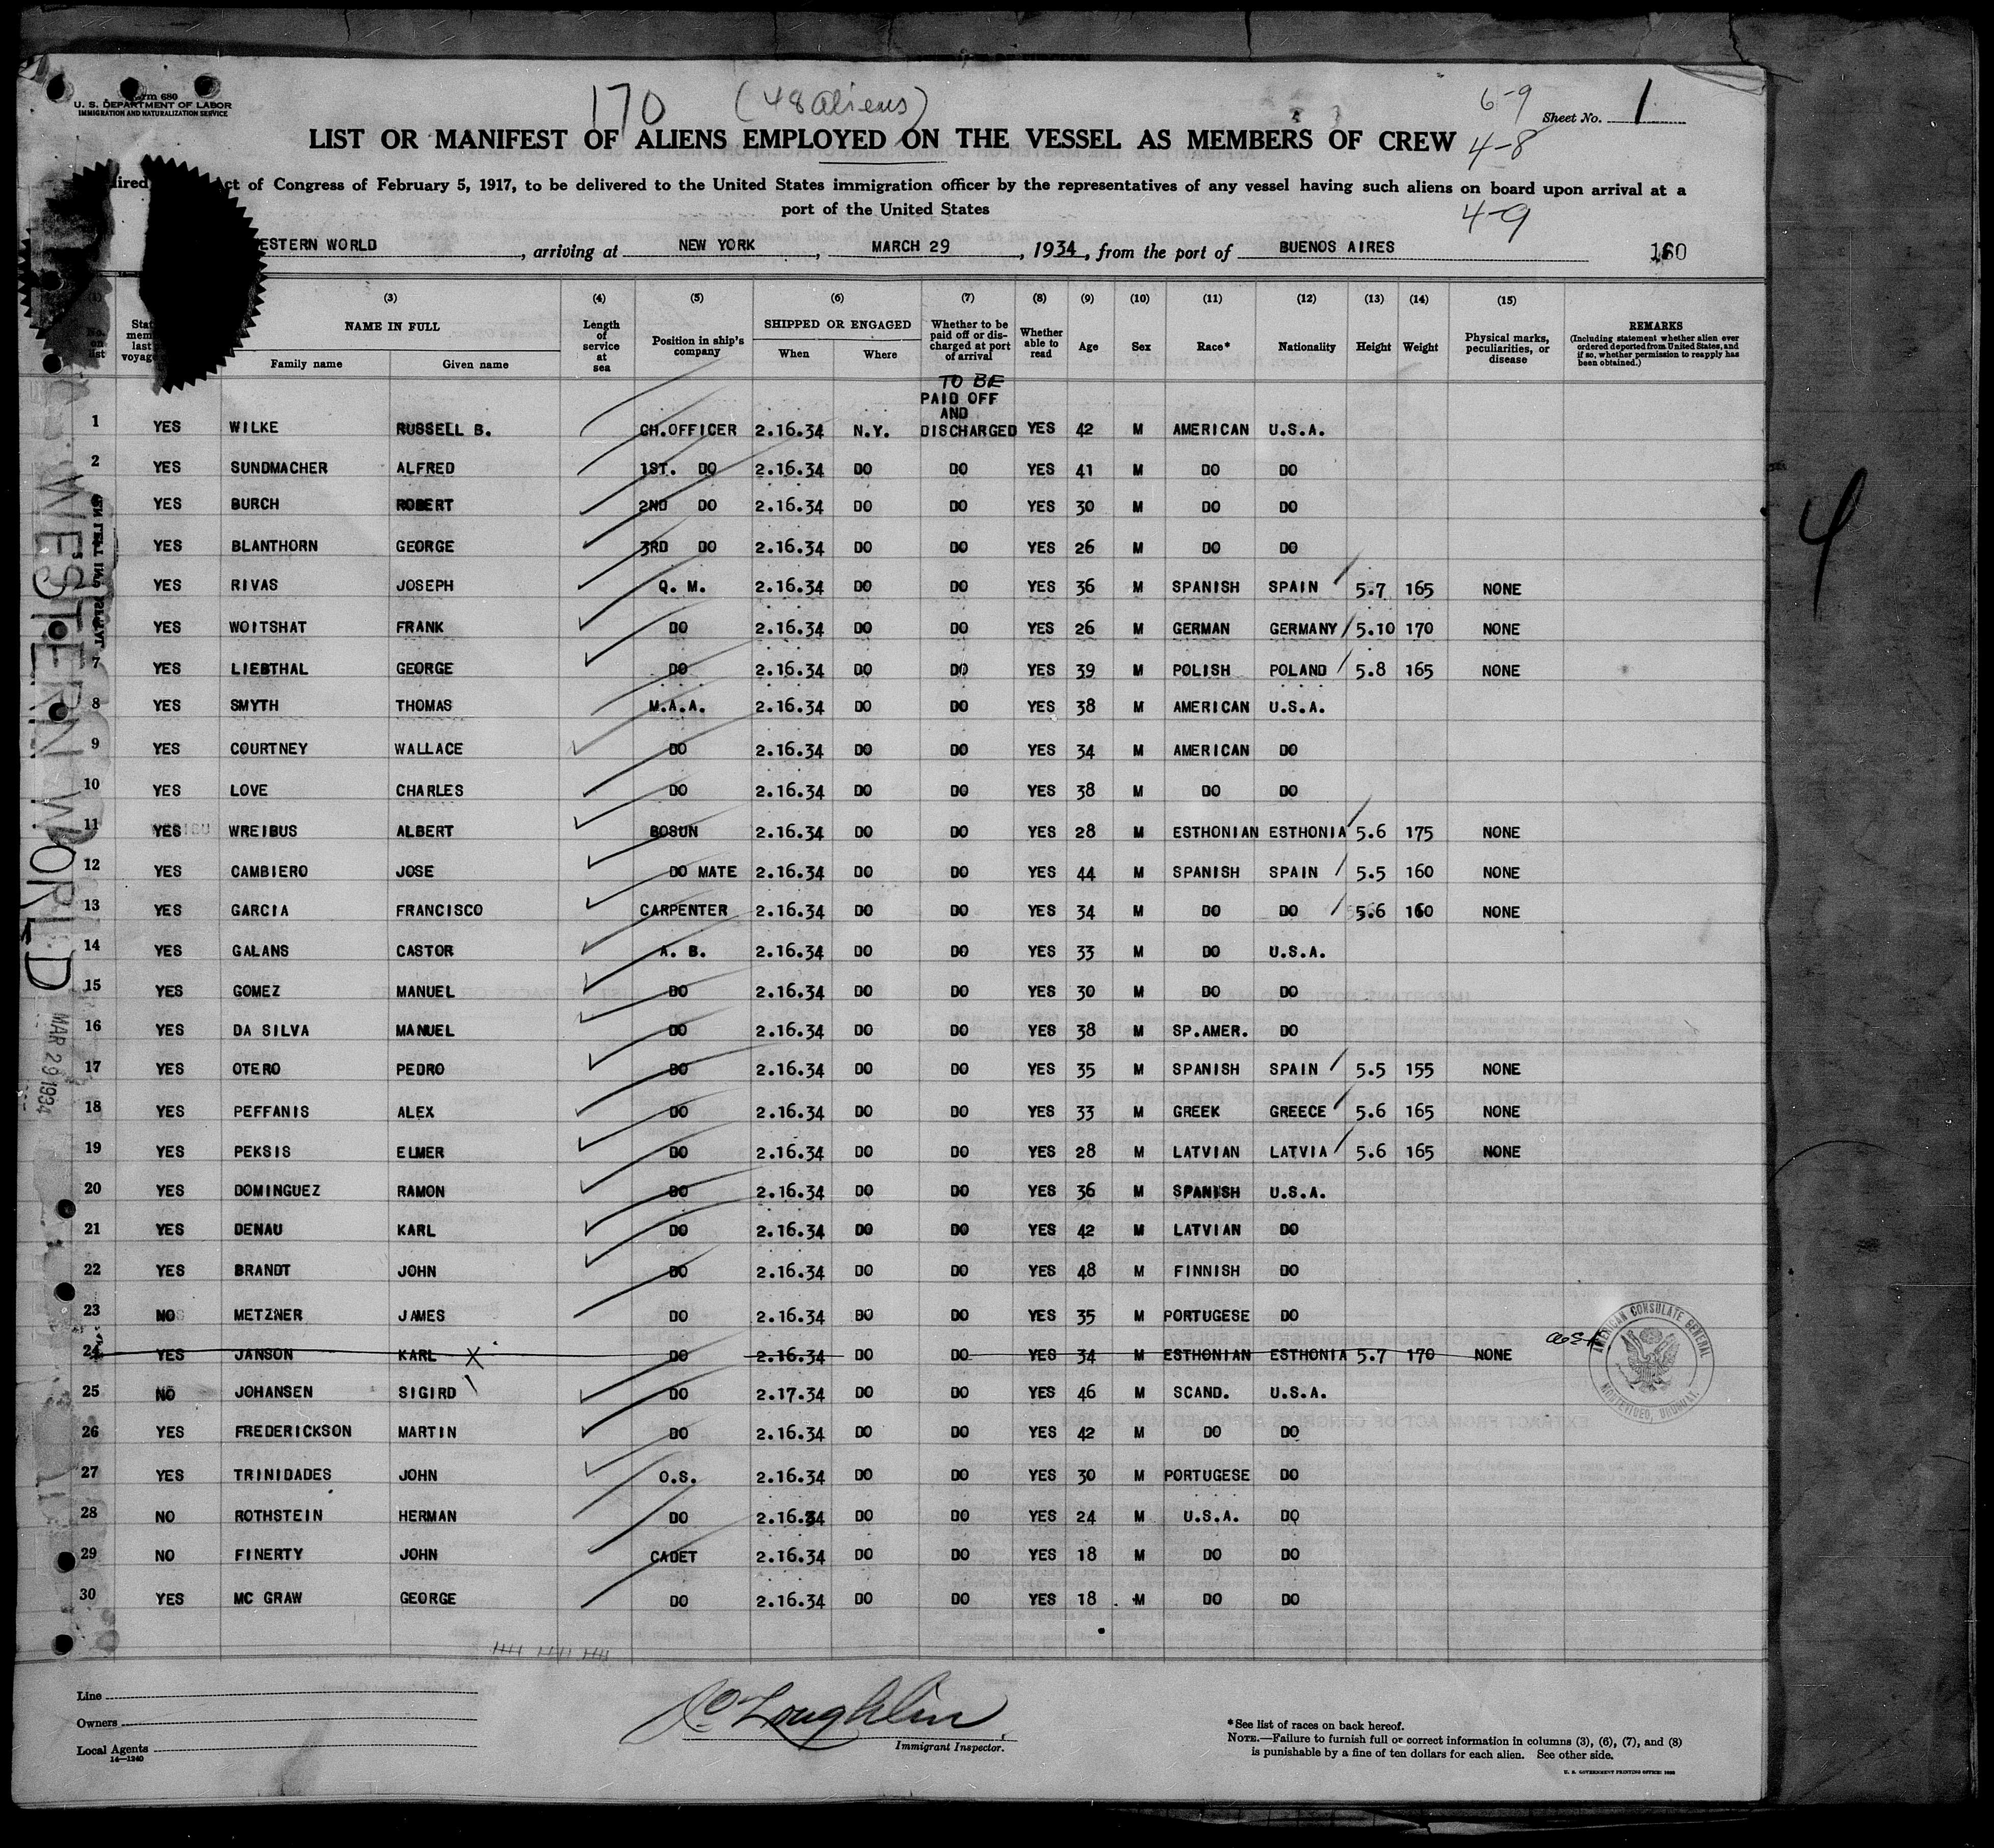 Form 680
U. S. DEPARTMENT OF LABOR
IMMIGRATION AND NATURALIZATION SERVICE
170 (48 aliens)
6-9
Sheet No. 1
LIST OR MANIFEST OF ALIENS EMPLOYED ON THE VESSEL AS MEMBERS OF CREW
4-8
Act of Congress of February 5, 1917, to be delivered to the United States immigration officer by the representatives of any vessel having such aliens on board upon arrival at a
port of the United States
4-9
ESTERN WORLD, arriving at NEW YORK, MARCH 29, 1934, from the port of BUENOS AIRES
(3) (4) (5) (6) (7) (8) (9) (10) (11) (12) (13) (14) (15)
No. on list
NAME IN FULL
Family name Given name
Length of service at sea
Position in ship's company
SHIPPED OR ENGAGED
When Where
Whether to be paid off or discharged at port of arrival
Whether able to read
Age Sex Race* Nationality Height Weight
Physical marks, peculiarities, or disease
REMARKS
(Including statement whether alien ever ordered deported from United States, and if so, whether permission to reapply has been obtained.)
TO BE
PAID OFF
AND
1 YES WILKE RUSSELL B. CH.OFFICER 2.16.34 N.Y. DISCHARGED YES 42 M AMERICAN U.S.A.
2 YES SUNDMACHER ALFRED 1ST. DO 2.16.34 DO DO YES 41 M DO DO
YES BURCH ROBERT 2ND DO 2.16.34 DO DO YES 30 M DO DO
YES BLANTHORN GEORGE 3RD DO 2.16.34 DO DO YES 26 M DO DO
YES RIVAS JOSEPH Q. M. 2.16.34 DO DO YES 36 M SPANISH SPAIN 5.7 165 NONE
YES WOITSHAT FRANK DO 2.16.34 DO DO YES 26 M GERMAN GERMANY 5.10 170 NONE
7 YES LIEBTHAL GEORGE DO 2.16.34 DO DO YES 39 M POLISH POLAND 5.8 165 NONE
8 YES SMYTH THOMAS M.A.A. 2.16.34 DO DO YES 38 M AMERICAN U.S.A.
9 YES COURTNEY WALLACE DO 2.16.34 DO DO YES 34 M AMERICAN DO
10 YES LOVE CHARLES DO 2.16.34 DO DO YES 38 M DO DO
11 YES WREIBUS ALBERT BOSUN 2.16.34 DO DO YES 28 M ESTHONIAN ESTHONIA 5.6 175 NONE
12 YES CAMBIERO JOSE DO MATE 2.16.34 DO DO YES 44 M SPANISH SPAIN 5.5 160 NONE
13 YES GARCIA FRANCISCO CARPENTER 2.16.34 DO DO YES 34 M DO DO 5.6 160 NONE
14 YES GALANS CASTOR A. B. 2.16.34 DO DO YES 33 M DO U.S.A.
15 YES GOMEZ MANUEL DO 2.16.34 DO DO YES 30 M DO DO
16 YES DA SILVA MANUEL DO 2.16.34 DO DO YES 38 M SP.AMER. DO
17 YES OTERO PEDRO DO 2.16.34 DO DO YES 35 M SPANISH SPAIN 5.5 155 NONE
18 YES PEFFANIS ALEX DO 2.16.34 DO DO YES 33 M GREEK GREECE 5.6 165 NONE
19 YES PEKSIS ELMER DO 2.16.34 DO DO YES 28 M LATVIAN LATVIA 5.6 165 NONE
20 YES DOMINGUEZ RAMON DO 2.16.34 DO DO YES 36 M SPANISH U.S.A.
21 YES DENAU KARL DO 2.16.34 DO DO YES 42 M LATVIAN DO
22 YES BRANDT JOHN DO 2.16.34 DO DO YES 48 M FINNISH DO
23 NO METZNER JAMES DO 2.16.34 DO DO YES 35 M PORTUGESE DO
24 YES JANSON KARL X DO 2.16.34 DO DO YES 34 M ESTHONIAN ESTHONIA 5.7 170 NONE
25 NO JOHANSEN SIGIRD DO 2.17.34 DO DO YES 46 M SCAND. U.S.A.
26 YES FREDERICKSON MARTIN DO 2.16.34 DO DO YES 42 M DO DO
27 YES TRINIDADES JOHN O.S. 2.16.34 DO DO YES 30 M PORTUGESE DO
28 NO ROTHSTEIN HERMAN DO 2.16.34 DO DO YES 24 M U.S.A. DO
29 NO FINERTY JOHN CADET 2.16.34 DO DO YES 18 M DO DO
30 YES MC GRAW GEORGE DO 2.16.34 DO DO YES 18 M DO DO
AMERICAN CONSULATE GENERAL
MONTEVIDEO, URUGUAY.
WESTERN WORLD
MAR 29 1934
4
Line
Owners
Local Agents
14-1240
Immigrant Inspector.
*See list of races on back hereof.
NOTE.—Failure to furnish full or correct information in columns (3), (6), (7), and (8)
is punishable by a fine of ten dollars for each alien. See other side.
U. S. GOVERNMENT PRINTING OFFICE